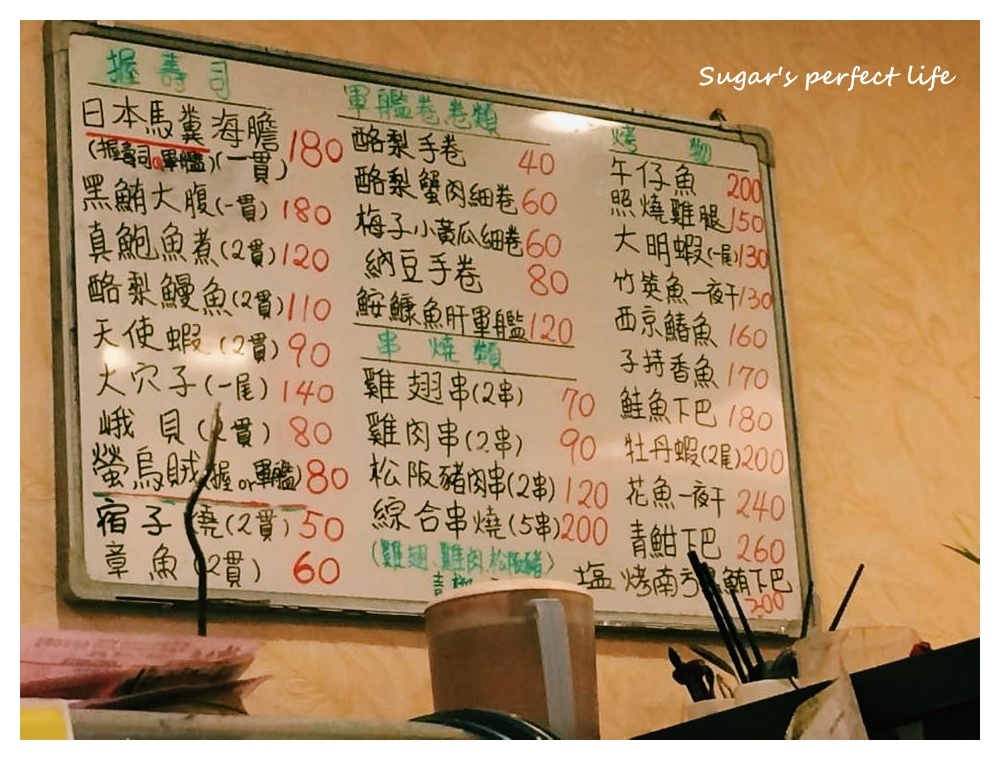 Sugar's perfect life
握壽司
日本馬糞海膽 180
(握壽司or軍艦)(一貫)
黑鮪大腹(一貫) 180
真鮑魚煮(2貫) 120
酪梨鰻魚(2貫) 110
天使蝦(2貫) 90
大穴子(一尾) 140
峨貝(2貫) 80
螢烏賊(握or軍艦) 80
宿子燒(2貫) 50
章魚(2貫) 60
軍艦卷卷類
酪梨手卷 40
酪梨蟹肉細卷 60
梅子小黃瓜細卷 60
納豆手卷 80
鮟鱇魚肝軍艦 120
串燒類
雞翅串(2串) 70
雞肉串(2串) 90
松阪豬肉串(2串) 120
綜合串燒(5串) 200
(雞翅、雞肉、松阪豬)
烤物
午仔魚 200
照燒雞腿 150
大明蝦(一尾) 130
竹筴魚一夜干 130
西京鰆魚 160
子持香魚 170
鮭魚下巴 180
牡丹蝦(2尾) 200
花魚一夜干 240
青魽下巴 260
塩烤南方黑鮪下巴
200